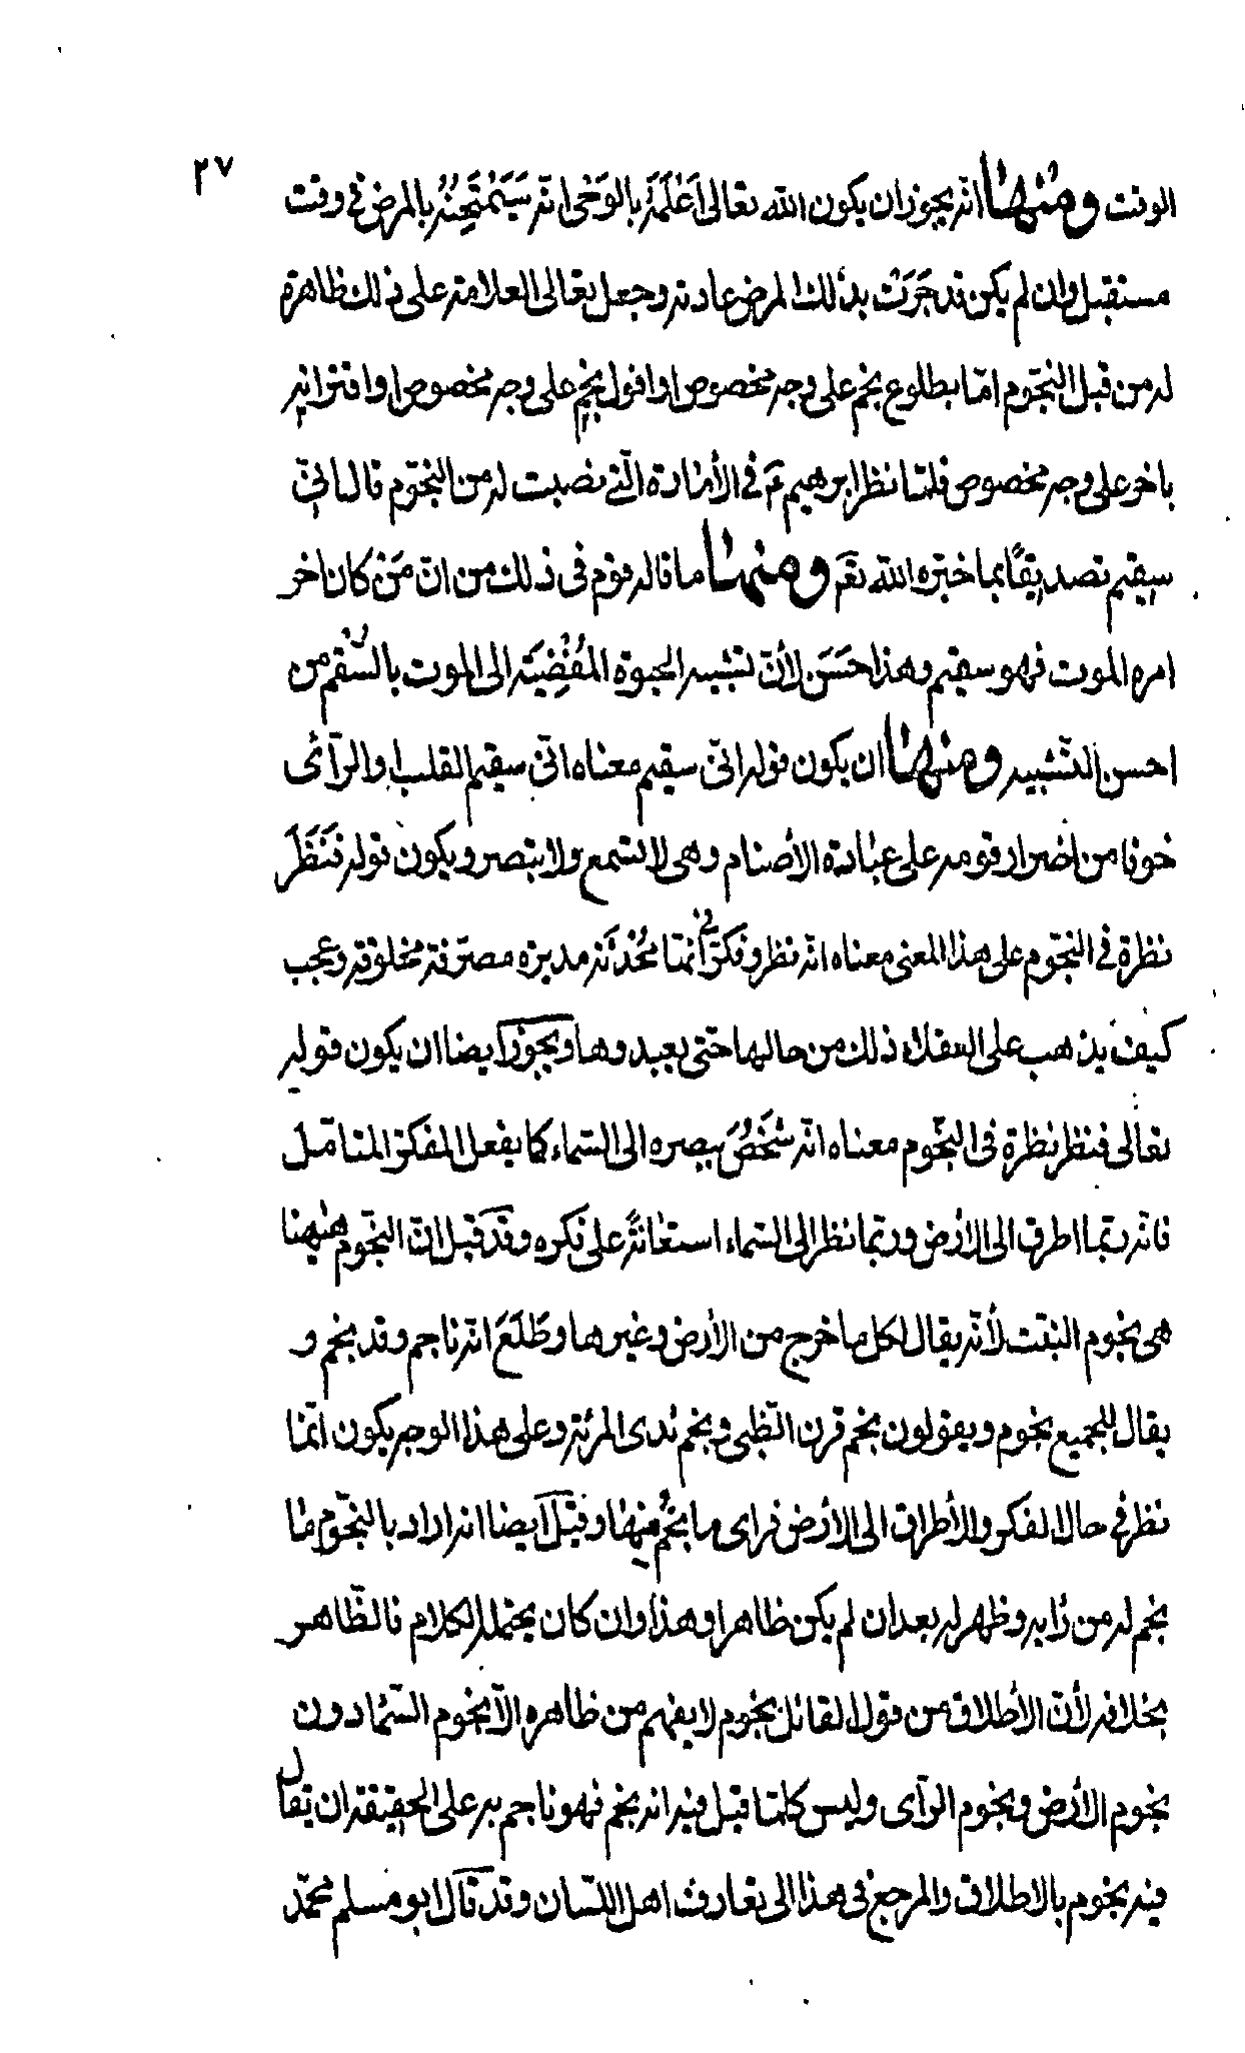 ٢٧
الوقت ومنها انّه يجوز ان يكون الله تعالى اَعْلَمَهُ بالوَحْى انّه سَيَمْتَحِنُهُ بالمرض فى وقت
مستقبل وان لم يكن قد جَرَتْ بذلك المرض عادته وجعل تعالى العلامة على ذلك ظاهرة
له من قبل النجّوم امّا بطلوع نجم على وجه مخصوص او افول نجمٍ على وجه مخصوص او اقترانهِ
باخر على وجه مخصوص فلمّا نظر ابرهيم عَ فى الأمارة الّتى نصبت له من النجّوم قال انىّ
سقيم تصديقًا بما خبّره الله تعَ ومنها ما قاله قوم فى ذلك من انّ مَنْ كان اخر
امره الموت فهو سقيم وهذا حَسَن لأنّ تشبيه الحيوة المُفْضِيَة الى الموت بالسُّقْم من
احسن التّشبيه ومنها ان يكون قوله انىّ سقيم معناه انّى سقيم القلب او الرّأى
خوفا من اضرار قومه على عبادة الأصنام وهى لا تسمع ولا تبصر ويكون قوله فَنَظَرَ
نظرة فى النجّوم على هذا المعنى معناه انّه نظر وفكرّ فى انّها مُحْدَثَة مدبرة مصرّفة مخلوقة وعجب
كيف يذهب على العقلاء ذلك من حالها حتّى يعبدوها ويجوز ايضا ان يكون قوله
تعالى فنظر نظرة فى النجّوم معناه انّه شَخَصَ ببصره الى السّماء كما يفعل المفكرّ المتامّل
فانّه ربّما اطرق الى الأرض وربّما نظر الى السّماء استعانةً على فكره وقد قيل انّ النجّوم هيهنا
هى نجوم النبّت لأنّه يقال لكل ما خرج من الأرض وغيرها وطَلَعَ انّه ناجم وقد نجم و
يقال للجميع نجوم ويقولون نجم قرن الظّبى ونجم ثدى المرئة وعلى هذا الوجه يكون انّما
نظر فى حال الفكر والأطراق الى الأرض فراى ما نجم منها وقيل ايضا انّه اراد بالنجّوم ما
نجم له من رأيه وظهر له بعد ان لم يكن ظاهرا وهذا وان كان يحتمله الكلام فالظّاهر
بخلافه لأنّ الأطلاق من قول القائل نجوم لا يفهم من ظاهره الّا نجوم السّماء دون
نجوم الأرض ونجوم الرّأى وليس كلّما قيل فيه انّه نجم فهو ناجم به على الحقيقة ان يقال
فيه نجوم بالاطلاق والمرجع فى هذا الى تعارف اهل اللسّان وقد قال ابو مسلم محمّد